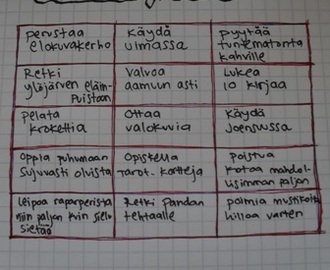 perustaa
elokuvakerho
käydä
ulmassa
pyytää
tuntematonta
kahville
Retki
ylöjärven eläin-
puistoon
Valvoa
aamuun asti
Lukea
10 kirjaa
Pelata
krokettia
Ottaa
valokuvia
Käydä
Joensuussa
Oppia puhumaan
sujuvasti oluista
Opiskella
tarot-kortteja
poistua
kotoa mahdol-
lisimman paljon
Leipoa raparperista
niin paljon kuin sielu
sietää
Retki Pandan
tehtaalle
poimia mustikoita
hilloa varten